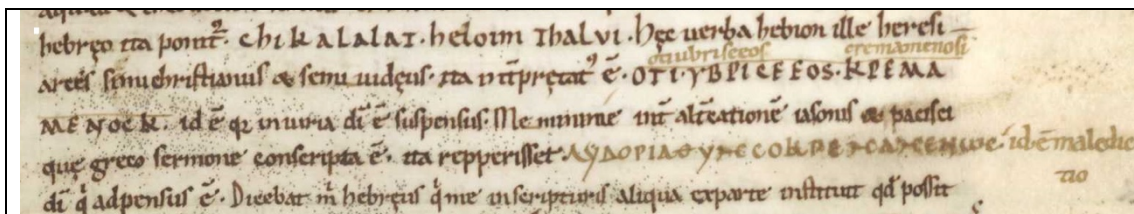 hebręo ita ponit᷒. chi kalalat. heloim Thalvi. Hęc uerba hebion ille heresi
otiubriseos cremamenosi
arces semichristianus & semiiudęus. ita int͛pretat᷒ ē. OTI. YBPICEEOS. KPEMA
MENOCK. id ē q̢ iniuria di ē suspensus. Memini me int͛ altcationē iasonis & papisci
que greco sermone conscripta ē. ita repperisse
id ē maledic
tio
di q̇ adpensus ē. Dicebat ṁ hebręus q̇ me in scripturis aliqua ex parte instituit qd̄ possit